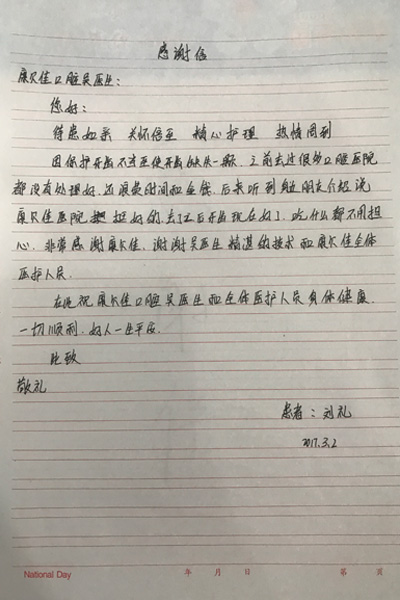 感谢信
康贝佳口腔吴医生：
您好：
待患如亲 关怀备至 精心护理 热情周到
因保护牙齿不当至使牙齿缺失一颗，之前去过很多口腔医院
都没有处理好，还浪费时间和金钱，后来听到身边朋友介绍说
康贝佳医院 挺好的，去了之后牙齿现在好了，吃什么都不用担
心，非常感谢康贝佳，谢谢吴医生精湛的技术和康贝佳全体
医护人员。
在此祝康贝佳口腔吴医生和全体医护人员身体健康，
一切顺利，好人一生平安。
此致
敬礼
患者：刘礼
2017.3.2
National Day 年 月 日 第 页